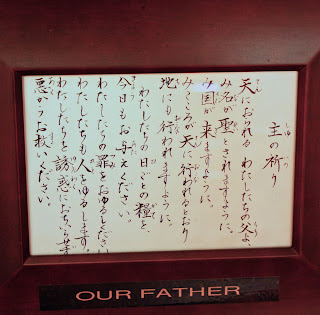 主の祈り
天におられる わたしたちの父よ、
み名が聖とされますように。
み国が来ますように。
みこころが天に行われるとおり
地にも行われますように。
わたしたちの日ごとの糧を、
今日もお与えください。
わたしたちの罪をおゆるしください
わたしたちも人をゆるします。
わたしたちを誘惑におちいらせず
悪からお救いください。
OUR FATHER